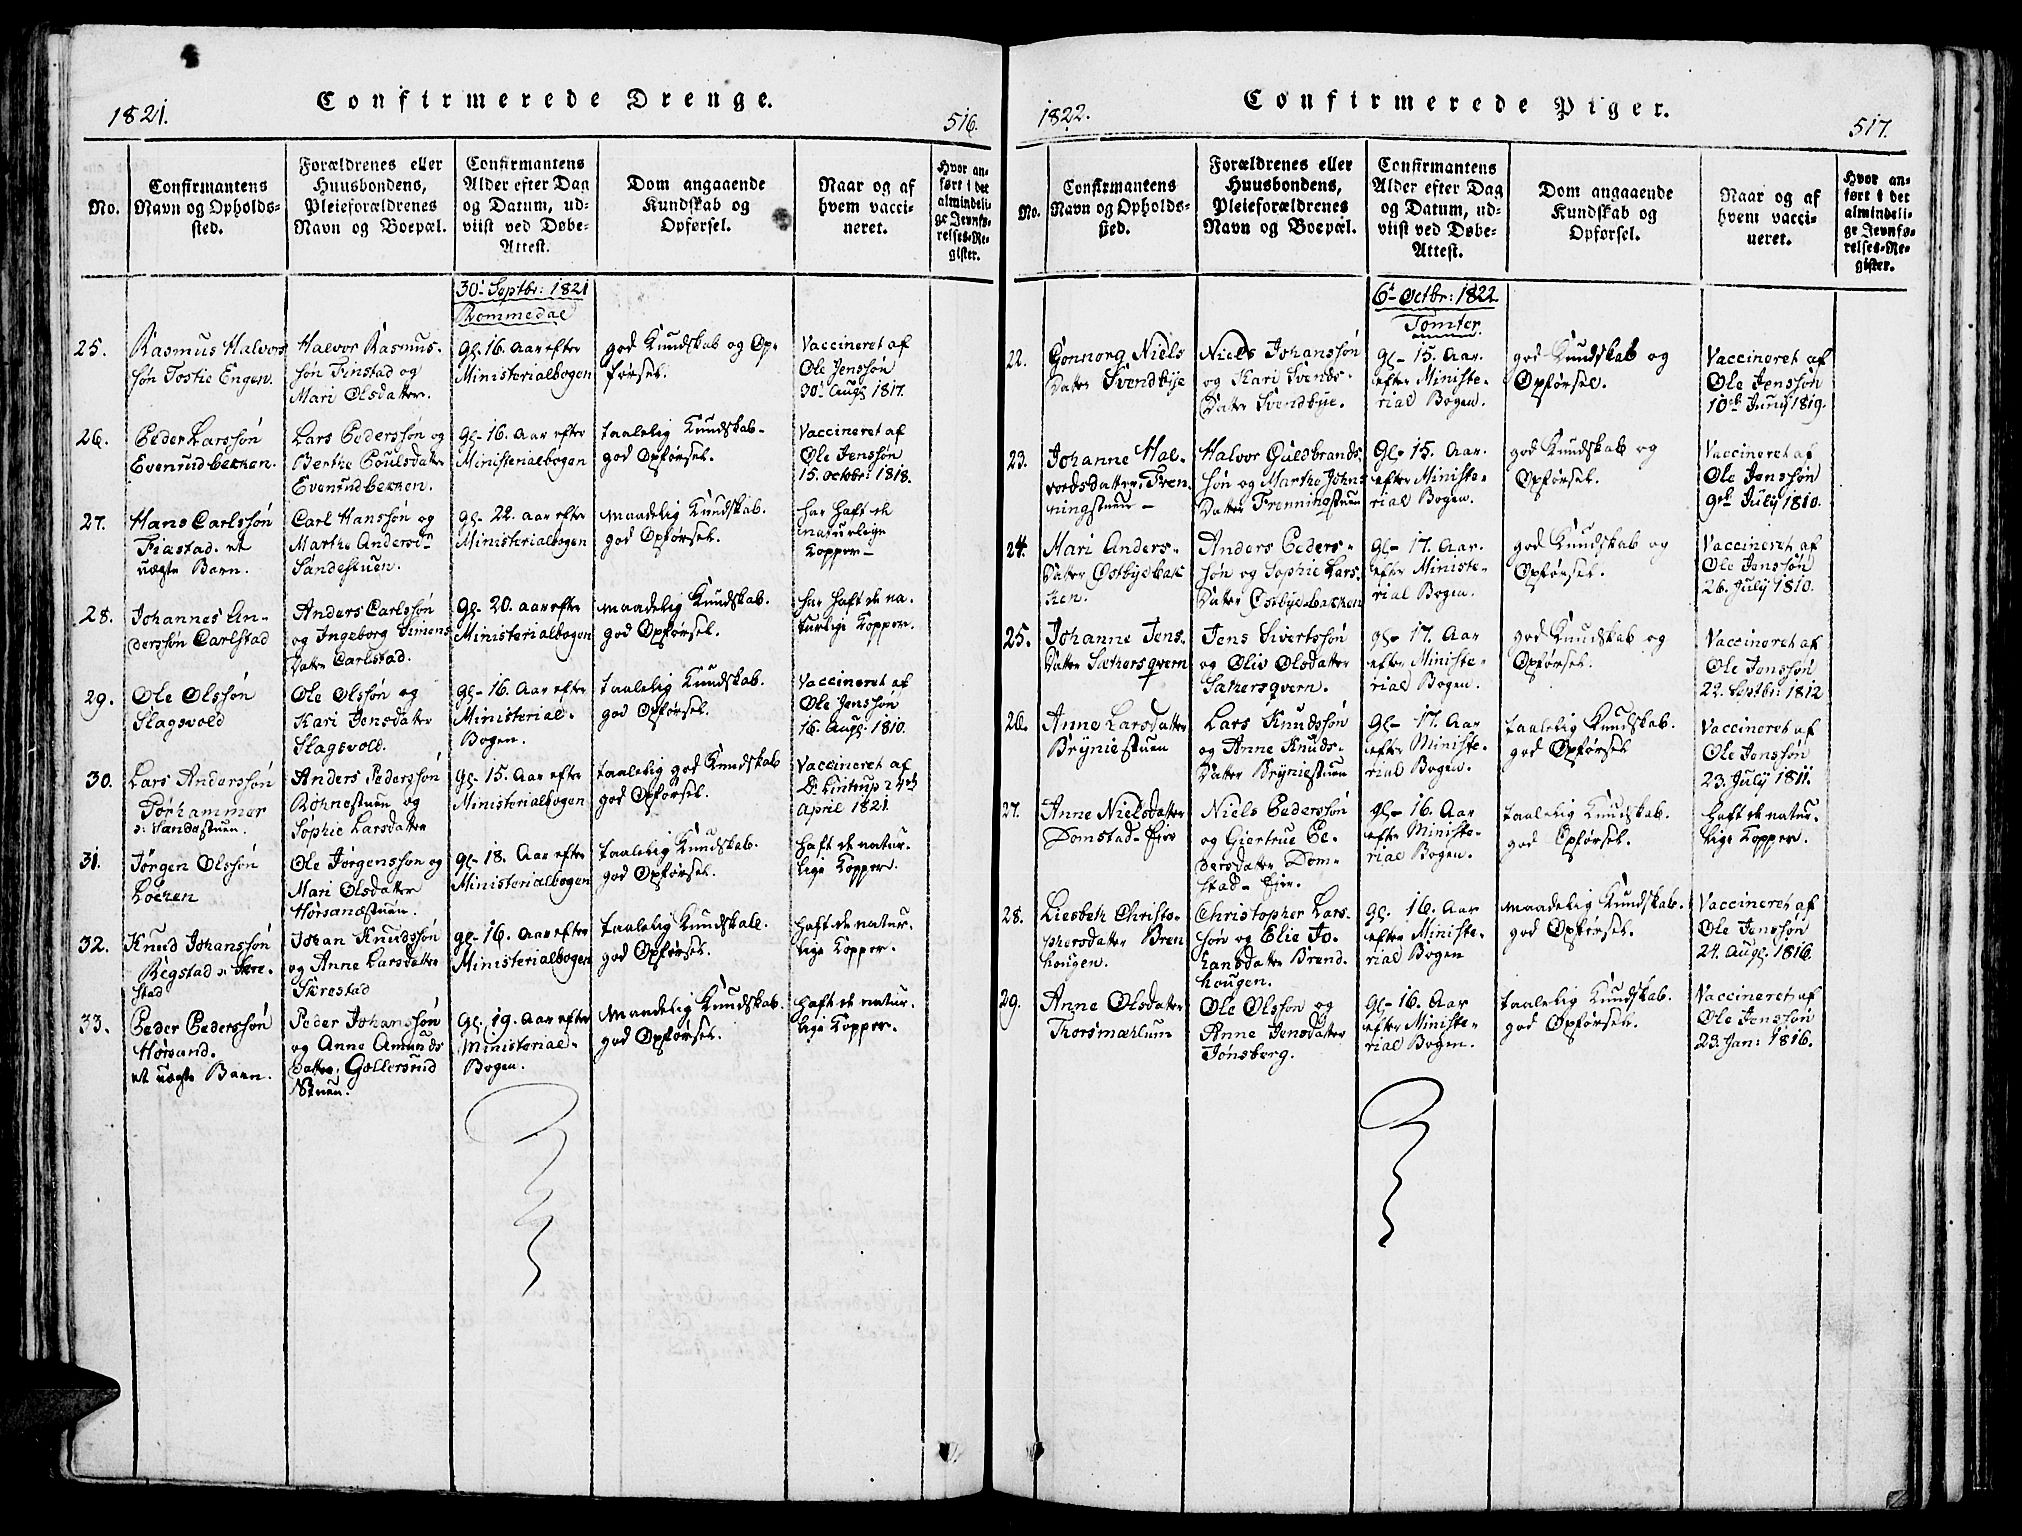 Confirmerede Drenge.
1821.
516.
No.
Confirmantens
Navn og Opholds-
sted.
Forældrenes eller
Huusbondens,
Pleieforældrenes
Navn og Boepæl.
Confirmantens
Alder efter Dag
og Datum, ud-
viist ved Døbe-
Attest.
Dom angaaende
Kundskab og
Opførsel.
Naar og af
hvem vacci-
neret.
Hvor an-
ført i det
almindeli-
ge Jevnfø-
relses-Re-
gister.
30. Septbr: 1821
Rommedal
25.
Rasmus Halvors
søn Tostie Engen.
Halvor Rasmus-
søn Finstad og
Mari Olsdatter.
Gl. 16. Aar efter
Ministerialbogen
god Kundskab og Op-
førsel.
Vaccineret af
Ole Jenssøn
30. Aug. 1817.
26.
Peder Larssøn
Evenrudbekken.
Lars Pederssøn og
Berthe Poulsdatter
Evenrudbekken.
Gl- 16. Aar efter
Ministerialbogen
taalelig Kundskab-
god Opførsel.
Vaccineret af
Ole Jenssøn
15. octobr: 1818.
27.
Hans Carlssøn
Fiastad. et
uægte Barn.
Carl Hanssøn og
Marthe Andersd
Sandestuen.
Gl- 22. aar efter
Ministerialbogen
maadelig Kundskab.
god Opførsel.
har haft de
naturlige
Kopper-
28.
Johannes An-
derssøn Carlstad
Anders Carlssøn
og Ingeborg Simens
Datter Carlstad.
Gl- 20. aar efter
Ministerialbogen
maadelig Kundskab.
god Opførsel.
har haft de na-
turlige Kopper.
29.
Ole Olssøn
Slagsvold
Ole Olssøn og
Kari Jensdatter
Slagsvold.
gl- 16. Aar efter
Ministerial-
Bogen.
taalelig Kundskab.
god Opførsel.
Vaccineret af
Ole Jenssøn
16. Aug. 1810.
30.
Lars Anderssøn
Torhammer
Sandestuen.
Anders Pederssøn
Rohnestuen og
Sophie Larsdatter
gl- 15. Aar efter
Ministerialbogen
taalelig god Kundskab
god Opførsel.
Vaccineret af
Dr. Lintrup 24de
April 1821.
31.
Jørgen Olssøn
Løken
Ole Jørgenssøn og
Mari Olsdatter
Horsandstuen.
gl- 18. Aar efter
Ministerialbogen
taalelig Kundskab.
god Opførsel.
haft de natur-
lige Kopper.
32.
Knud Johanssøn
Regstad Skre-
stad
Johan Knudssøn
og Anne Larsdatter
Skrestad
gl- 16. Aar efter
Ministerialbogen
taalelig Kundskab.
god Opførsel.
haft de natur-
lige Kopper.
33.
Peder Pederssøn
Horsand.
et uægte Barn.
Peder Johanssøn
og Anne Amunds
Datter, Gællersrud
Stuen.
Gl. 19. Aar efter
Ministerial-
Bogen.
Maadelig Kundskab.
god Opførsel.
haft de natur-
lige Kopper.
Confirmerede Piger.
1822.
517.
No.
Confirmantens
Navn og Opholds-
sted.
Forældrenes eller
Huusbondens,
Pleieforældrenes
Navn og Boepæl.
Confirmantens
Alder efter Dag
og Datum, ud-
viist ved Døbe-
Attest.
Dom angaaende
Kundskab og
Opførsel.
Naar og af
hvem vacci-
neret.
Hvor an-
ført i det
almindeli-
ge Jevnfø-
relses-Re-
gister.
6. Octbr: 1822
Tomter.
22.
Gonnorg Niels
Datter Svendbye
Niels Johanssøn
og Kari Svends-
Datter Svendbye.
Gl- 15. Aar.
efter Ministe-
rial Bogen.
god Kundskab og
Opførsel.
Vaccineret af
Ole Jenssøn
10de Juny 1819.
23.
Johanne Hal-
vorsdatter, Fren-
ningstuen-
Halvor Guldbrands
søn og Marthe Johns
Datter Frenningstuen
Gl- 15. Aar.
efter Ministe-
rial Bogen.
god Kundskab og
Opførsel.
Vaccineret af
Ole Jenssøn
9de July 1810.
24.
Mari Anders-
Datter Østbyebak
ken.
Anders Peders-
søn og Sophie Lars-
Datter Østbyebakken
gl- 17. Aar.
efter Ministe-
rial Bogen.
god Kundskab og
Opførsel.
Vaccineret af
Ole Jenssøn
26. July 1810.
25.
Johanne Jens-
Datter Sæthersqvern
Jens Sivertssøn
og Oliv Olsdatter
Sæthersqvern.
gl- 17. Aar
efter Ministe-
rial Bogen.
god Kundskab og
Opførsel.
Vaccineret af
Ole Jenssøn
22. Septbr: 1812
26.
Anne Larsdatter
Bryniestuen
Lars Knudssøn
og Anne Knuds-
Datter Bryniestuen
Gl- 17. Aar
efter Ministe-
rial Bogen.
taalelig Kundskab.
god Opførsel
Vaccineret af
Ole Jenssøn
23. July 1811.
27.
Anne Nielsdatter
Domstad-Eier
Niels Pederssøn
og Giertrue Pe-
dersdatter Dom-
stad-Eier.
gl- 16. Aar
efter Ministe-
rial Bogen.
taalelig Kundskab.
god Opførsel.
haft de natur-
lige Kopper.
28.
Liesbeth Christo-
phersdatter Bren
hougen.
Christopher Lars-
søn og Elie Jo-
hansdatter Brend-
hougen.
gl. 16. Aar
efter Ministe-
rial Bogen
maadelig Kundskab.
god Opførsel.
Vaccineret af
Ole Jenssøn
24. Aug. 1816.
29.
Anne Olsdatter
Thorsmæhlum
Ole Olssøn og
Anne Jensdatter
Jønsberg.
gl- 16. Aar
efter Ministe-
rial Bogen.
taalelig Kundskab.
god Opførsel.
Vaccineret af
Ole Jenssøn
23. Jan: 1816.